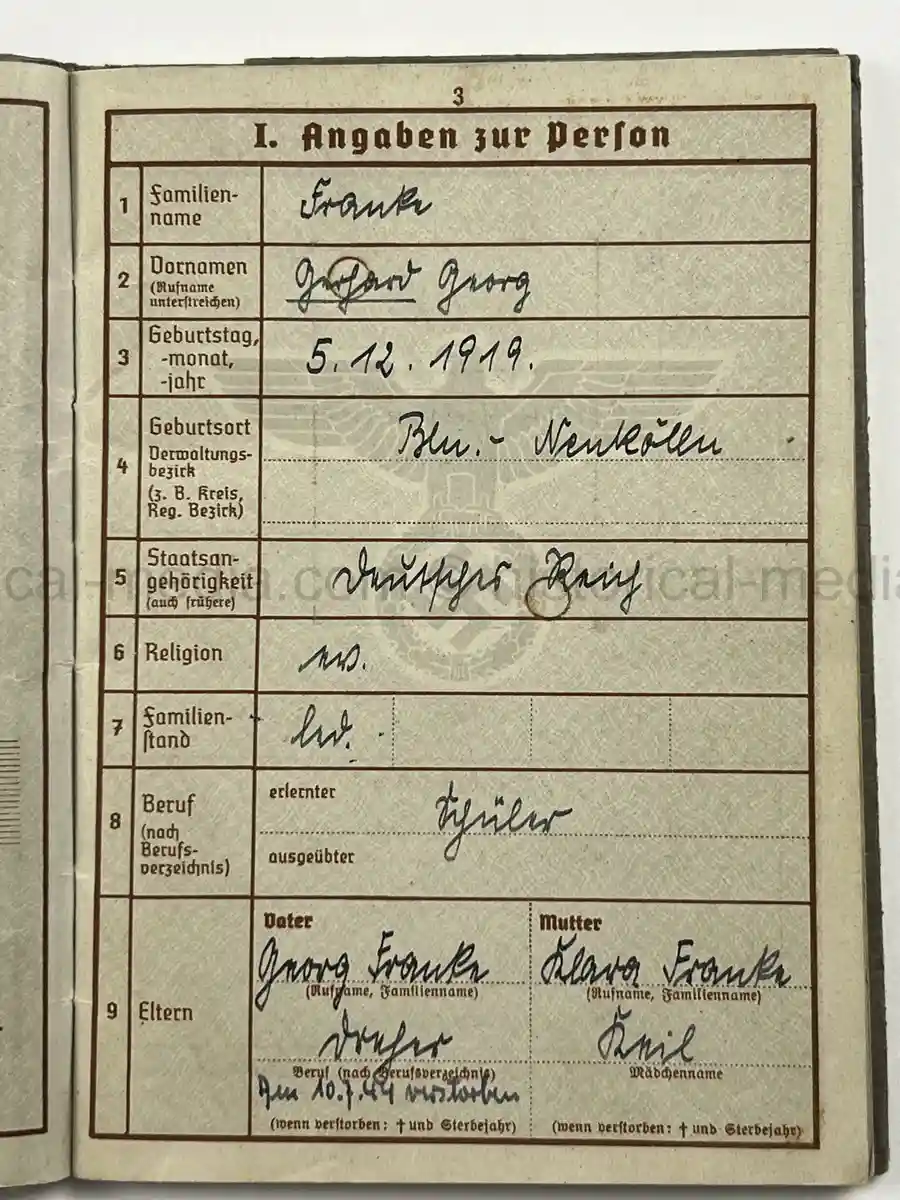 3
I. Angaben zur Person
1 Familien-
name
Franke
2 Vornamen
(Rufname
unterstreichen)
Gerhard Georg
3 Geburtstag,
-monat,
-jahr
5.12.1919.
4 Geburtsort
Verwaltungs-
bezirk
(z. B. Kreis,
Reg. Bezirk)
Bln.- Neukölln
5 Staatsan-
gehörigkeit
(auch frühere)
Deutsches Reich
6 Religion
ev.
7 Familien-
stand
led.
8 Beruf
(nach
Berufs-
verzeichnis)
erlernter
Schüler
ausgeübter
9 Eltern
Vater
Georg Franke
(Rufname, Familienname)
Dreher
Beruf (nach Berufsverzeichnis)
Am 10.7.44 verstorben
(wenn verstorben: † und Sterbejahr)
Mutter
Klara Franke
(Rufname, Familienname)
Keil
Mädchenname
(wenn verstorben: † und Sterbejahr)
cal-media.co historical-media